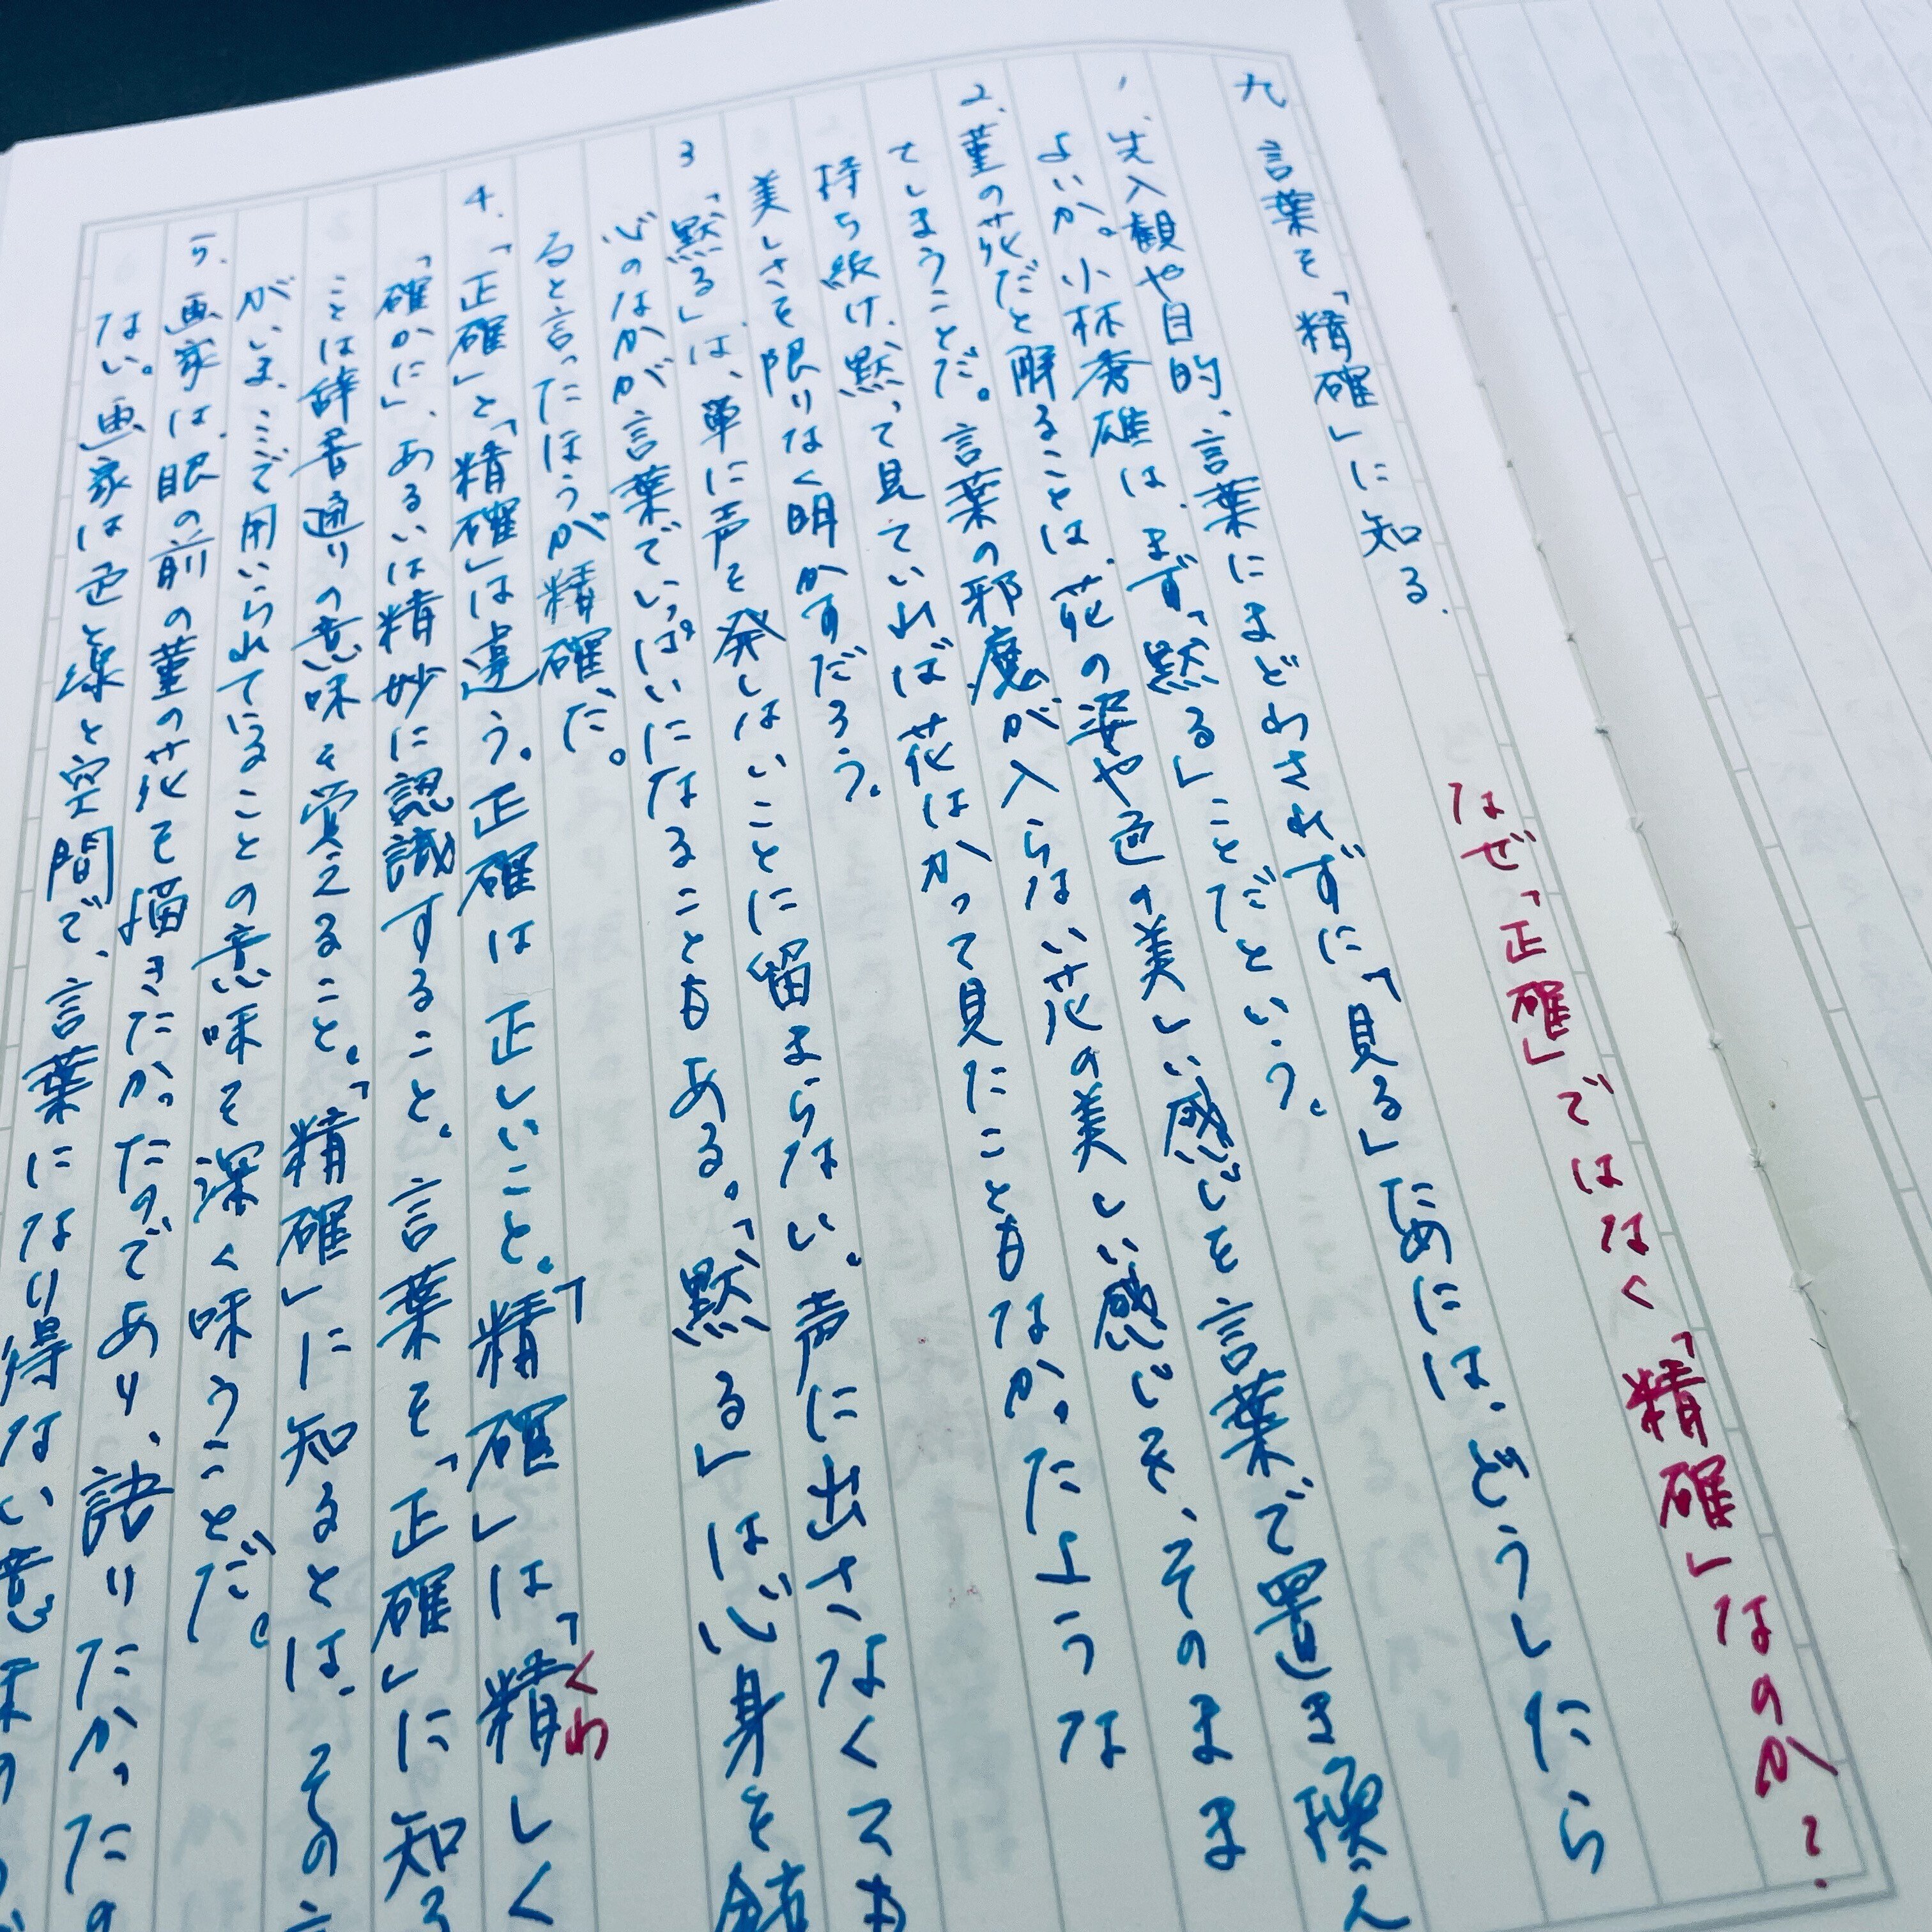 九 言葉を「精確」に知る.
なぜ「正確」ではなく「精確」なのか?
1. 先入観や目的、言葉にまどわされずに「見る」ためには、どうしたら
よいか。小林秀雄は、まず「黙る」ことだという。
2. 菫の花だと解ることは、花の姿や色の美しい感じを言葉で置き換え
てしまうことだ。言葉の邪魔が入らない花の美しい感じを、そのまま
持ち続け、黙って見ていれば花はかつて見たこともなかったような
美しさを限りなく明かすだろう。
3 「黙る」は、単に声を発しないことに留まらない。声に出さなくても
心のなかが言葉でいっぱいになることもある。「黙る」は心身を
ると言ったほうが精確だ。
4. 「正確」と「精確」は違う。正確は正しいこと。「精確」は「精しく
くわ
「確かに」、あるいは精妙に認識すること。言葉を「正確」に知る
ことは辞書通りの意味を覚えること。「精確」に知るとは、その
がいま、ここで用いられてにることの意味を深く味うことだ。
5. 画家は、眼の前の菫の花を描きたかったのであり、訣りたかった
ない。画家は色と線と空間で、言葉になり得ない意味の